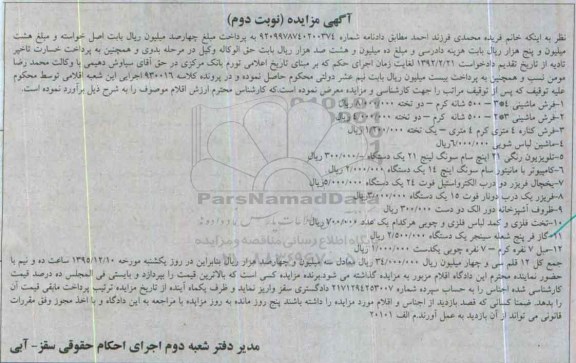 آگهی مزایده (نوبت دوم)
نظر به اینکه خانم فریده محمدی فرزند احمد مطابق دادنامه شماره ۹۲۰۹۹۷۸۷۴۰۲۰۰۳۷۴ به پرداخت مبلغ چهارصد میلیون ریال بابت اصل خواسته و مبلغ هشت
میلیون و پنج هزار ریال بابت هزینه دادرسی و مبلغ ده میلیون و هشت صد هزار ریال بابت حق الوکاله وکیل در مرحله بدوی و همچنین به پرداخت خسارت تاخیر
تادیه از تاریخ تقدیم دادخواست ۱۳۹۲/۲/۲۱ لغایت زمان اجرای حکم که بر مبنای تاریخ اعلامی تورم بانک مرکزی در حق آقای سیاوش دهیمی با وکالت محمد رضا
مومن نسب و همچنین به پرداخت بیست میلیون ریال بابت نیم عشر دولتی محکوم حاصل نموده و در پرونده کلاسه ۹۳۰۰۱۶ اجرایی این شعبه اقلامی توسط محکوم
علیه توقیف که پس از توقیف مراتب را جهت کارشناسی و مزایده معرض نموده است،که کارشناسی محترم ارزش اقلام موصوف را به شرح ذیل برآورد نموده است.
۱-فرش ماشینی ۴*۳ – ۵۰۰ شانه کرم – دو تخته ریال
۲-فرش ماشینی ۳*۲ – ۵۰۰ شانه کرم – دو تخته ۴/۰۰۰/۰۰۰ ریال
۳-فرش کناره ۴ متری کرم ۴ متری – یک تخته ۱/۲۰۰/۰۰۰ ریال
۴-ماشین لباس شویی ۶/۰۰۰/۰۰۰ ریال
۵-تلویزیون رنگی ۲۱ اینچ سام سونگ لینج ۲۱ یک دستگاه ۳۰۰/۰۰۰ ریال
۶-کامپیوتر با مانیتور سام سونگ اینچ ۱۴ یک دستگاه ۲/۰۰۰/۰۰۰ ریال
۷-یخچال فریزر دو درب الکترواستیل فوت ۲۴ یک دستگاه ۵/۰۰۰/۰۰۰ ریال
۸-فریزر یک درب دونار فوت ۱۵ یک دستگاه ۳/۰۰۰/۰۰۰ ریال
۹-ظروف آشپزخانه دور الک دو دست ۳۰۰/۰۰۰ ریال
۱۰-تخت فلزی و کمد لباس فلزی و چوبی هرکدام یک عدد ۷۰۰/۰۰۰ ریال
۱۱-گاز فر پنج شعله سینجر یک دستگاه ۲/۵۰۰/۰۰۰ ریال
۱۲-مبل ۷ نفره کرم – ۷ نفره چوبی یکدست ۱/۰۰۰/۰۰۰ ریال
جمع کل ۱۲ قلم سی و چهار میلیون ریال ۳۴/۰۰۰/۰۰۰ ریال معادل سه میلیون و چهارصد هزار ریال بنابراین در روز یکشنبه مورخه ۱۳۹۵/۱۲/۱۰ ساعت ده و نیم با
حضور نماینده محترم این دادگاه اقلام مزبور به مزایده گذاشته می شود.برنده مزایده کسی است که بالاترین قیمت را بپردازد و بایستی فی المجلس ده درصد قیمت
کارشناسی شده اجناس را به حساب سپرده شماره ۲۱۷۱۲۹۴۲۵۳۰۰۷ دادگستری سقز واریز نماید و ظرف یکماه آینده از تاریخ مزایده ترتیب پرداخت مابقی قیمت آن
را بدهد. ضمنا کسانی که قصد بازدید از اجناس و اقلام مورد مزایده را داشته باشند پنج روز مانده به روز مزایده با مراجعه به این دادگاه و با اخذ مجوز وفق مقررات
قانونی می تواند از آن بازدید به عمل آورند.م الف ۲۰۱۰۱
مدیر دفتر شعبه دوم اجرای احکام حقوقی سقز- آیی
ParsNamadData
پایگاه اطلاع رسانی مناقصه و مزایده